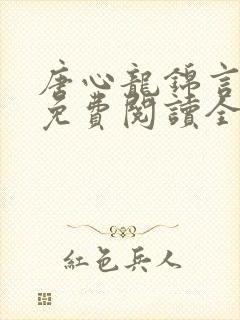 唐心龍錦言
免費閱讀全
紅色兵人